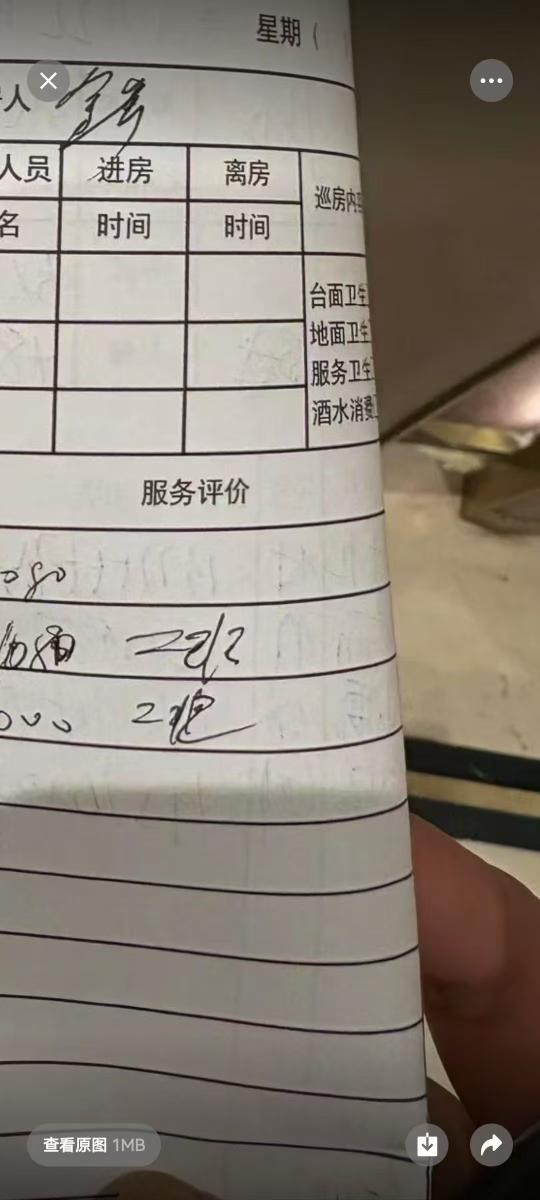 星期（
人
人员 进房 离房 巡房内
名 时间 时间
台面卫生
地面卫生
服务卫生
酒水消费
服务评价
二班
二班
查看原图 1MB